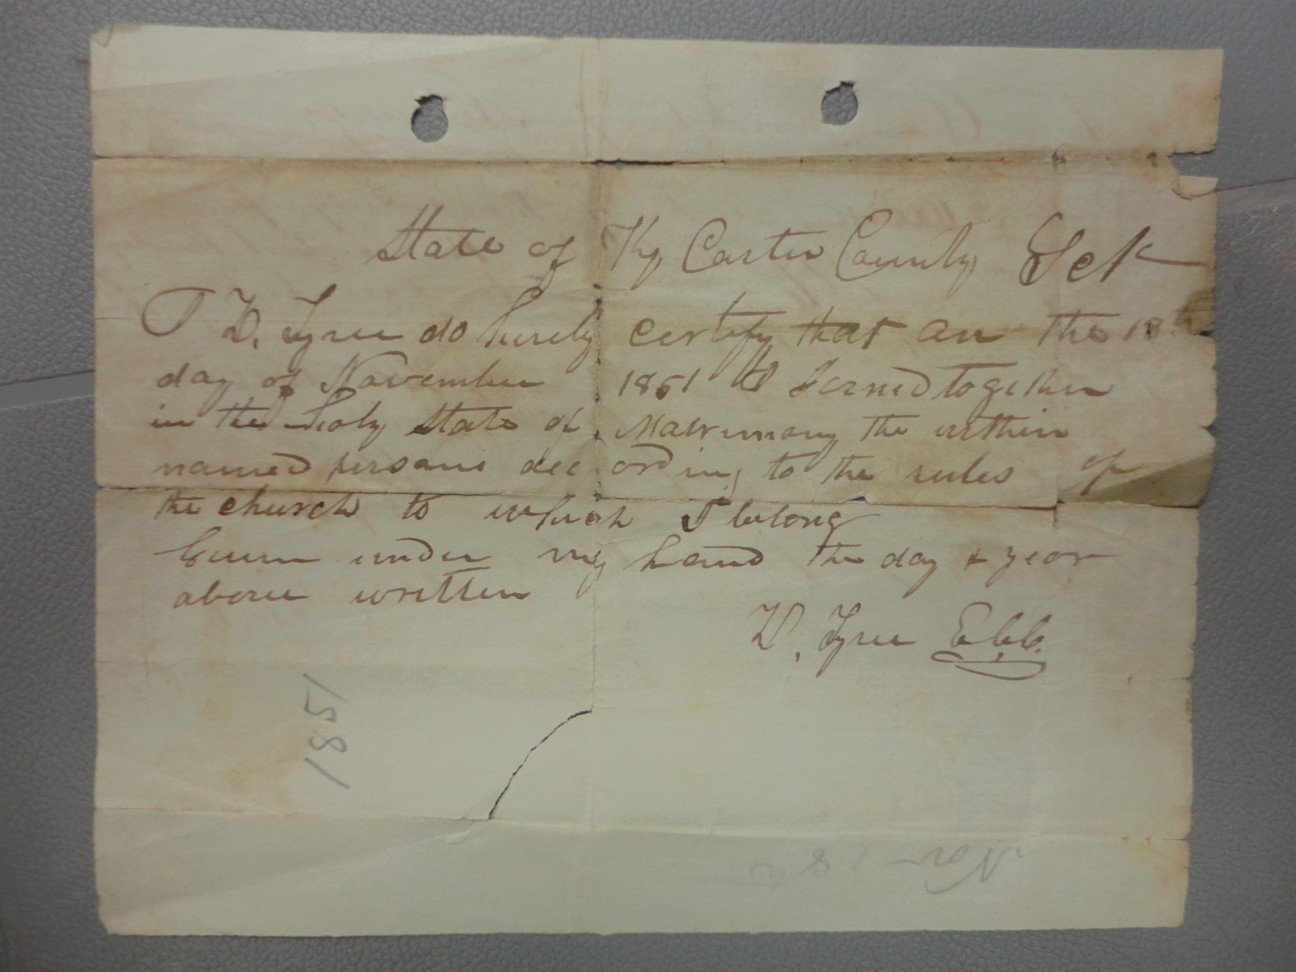 State of Ky Carter County Sct
I W. Tyree do hereby certify that an the 18th
day of November 1851 I Joined together
in the holy State of Matrimony the within
named persans according to the rules of
the church to which I belong
Given under my hand the day + year
above written
W. Tyree
1851
Nov 18